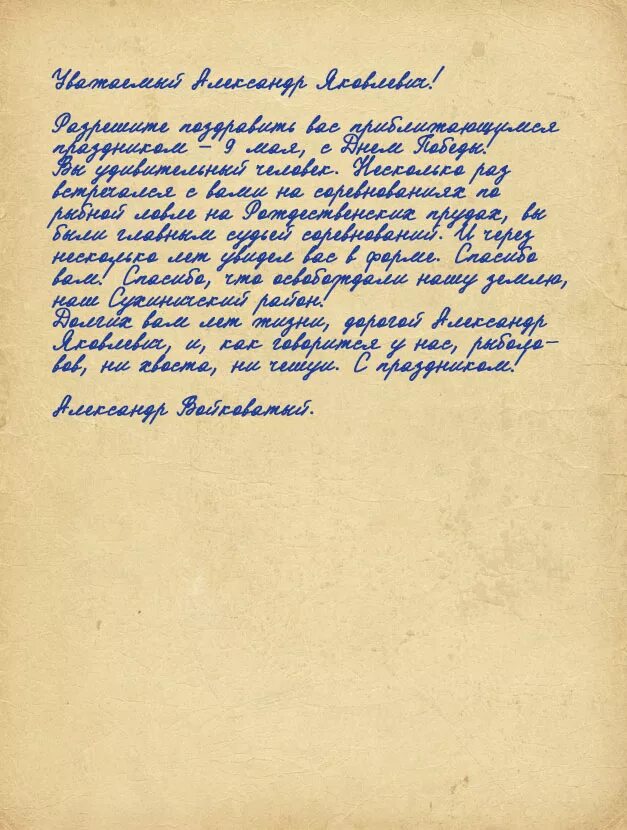 Уважаемый Александр Яковлевич!
Разрешите поздравить вас приближающимся
праздником – 9 мая, с Днем Победы!
Вы удивительный человек. Несколько раз
встречался с вами на соревнованиях по
рыбной ловле на Рождественских прудах, вы
были главным судьей соревнований. И через
несколько лет увидел вас в форме. Спасибо
вам! Спасибо, что освобождали нашу землю,
наш Сухиничский район!
Долгих вам лет жизни, дорогой Александр
Яковлевич, и, как говорится у нас, рыболо-
вов, ни хвоста, ни чешуи. С праздником!
Александр Войковатый.